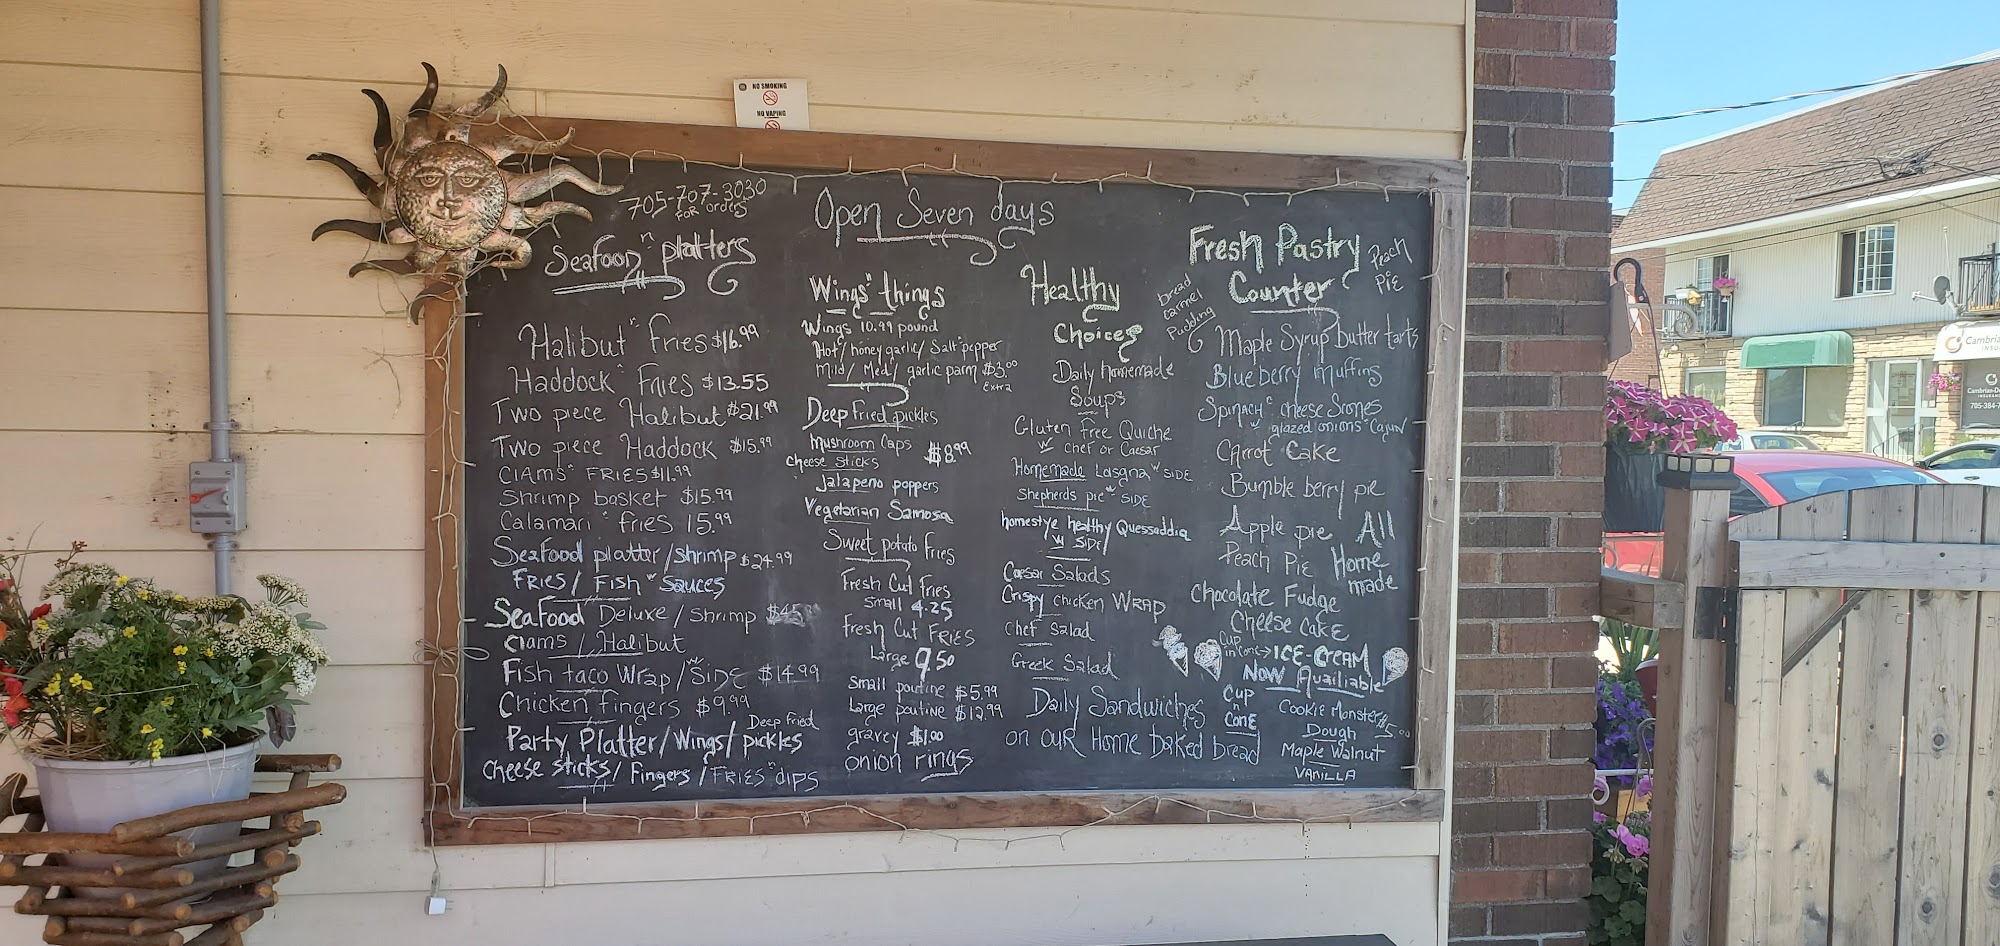 NO SMOKING
NO VAPING
705-707-3030
FOR orders
Open Seven days
Seafood n platters
Halibut n Fries $16.99
Haddock n Fries $13.55
Two piece Halibut $21.99
Two piece Haddock $15.99
Clams n FRIES $11.99
Shrimp basket $15.99
Calamari n fries 15.99
Seafood platter/shrimp $24.99
Fries/Fish n Sauces
Seafood Deluxe/Shrimp $45
Clams/Halibut
Fish taco Wrap/w SIDE $14.99
Chicken fingers $9.99
Party Platter/Wings/Deep fried pickles
Cheese sticks/Fingers/FRIES n dips
Wings n things
Wings 10.99 pound
Hot/honey garlic/Salt n pepper
Mild/Med/garlic parm $3.00
Extra
Deep Fried pickles
Mushroom Caps
$8.99
Cheese sticks
Jalapeno poppers
Vegetarian Samosa
Sweet potato fries
Fresh Cut Fries
Small 4.25
fresh Cut FRIES
Large 9.50
Small poutine $5.99
Large poutine $12.99
gravey $1.00
onion rings
Healthy
Choices
Daily homemade
Soups
Gluten Free Quiche
w/ Chef or Caesar
Homemade Lasgna w SIDE
Shepherds pie w SIDE
homestye healthy Quessaddia
w/ SIDE
Caesar Salads
Crispy chicken WRAP
Chef Salad
Greek Salad
Daily Sandwiches
on our Home baked bread
Fresh Pastry
Counter
Peach
Pie
bread
carmel
Pudding
Maple Syrup Butter tarts
Blueberry muffins
Spinach n cheese Scones
glazed onions n Cajun
Carrot Cake
Bumble berry pie
Apple pie
Peach Pie
All
Home
made
Chocolate Fudge
Cheese Cake
Cup
in Cone → ICE-CREAM
Now Availiable
Cup
n
Cone
Cookie Monster $5.00
Dough
Maple Walnut
VANILLA